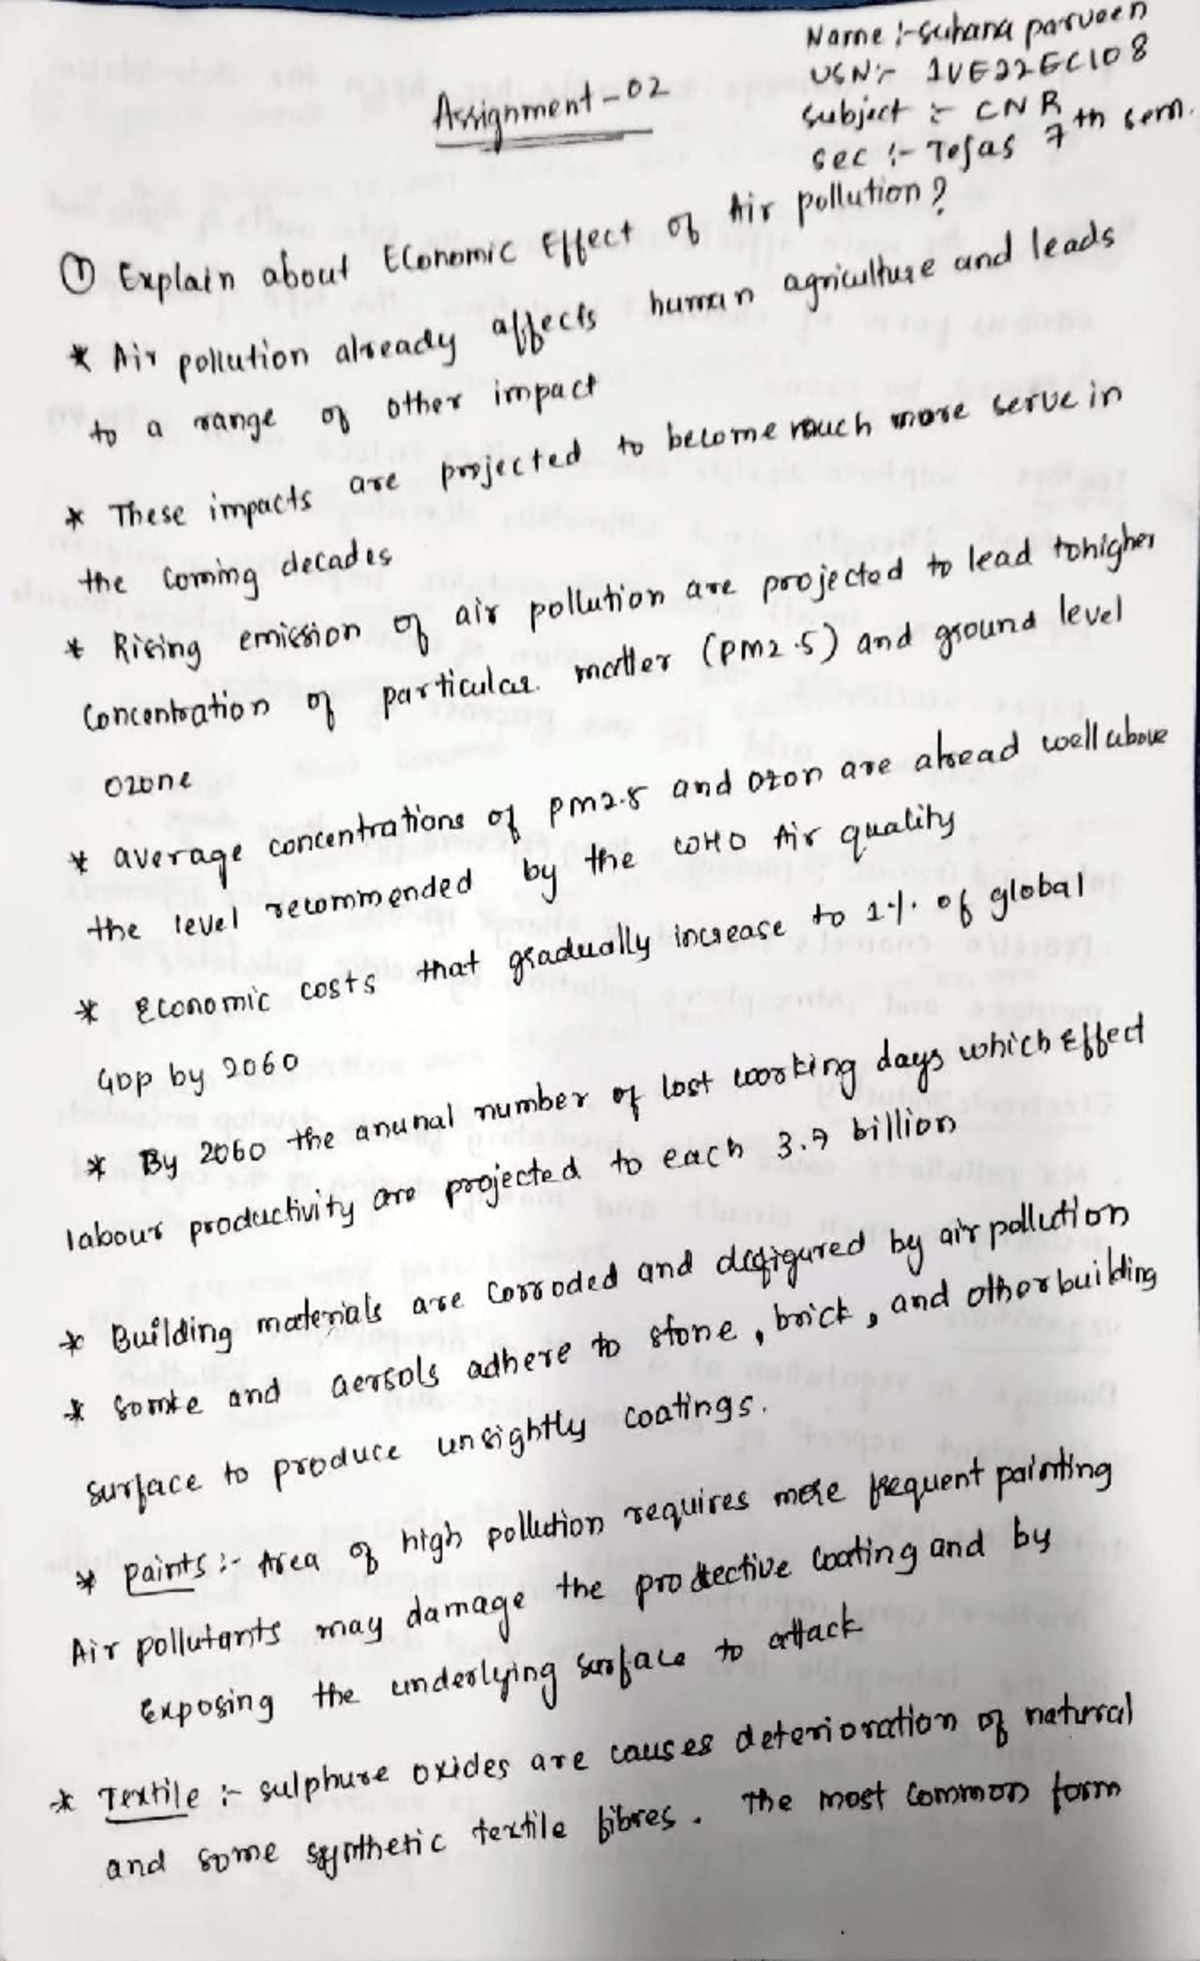 Name :- Suhana parveen
USN:- 1VE22EC108
Subject :- CNR
sec :- Tejas 7th sem.
Assignment-02
① Explain about Economic Effect of Air pollution?
* Air pollution already affects human agriculture and leads
to a range of other impact
* These impacts are projected to become much more serve in
the coming decades
* Rising emission of air pollution are projected to lead to higher
concentration of particular matter (pm2.5) and ground level
ozone
* average concentrations of pm2.5 and ozon are alread well above
the level recommended by the WHO Air quality
* Economic costs that gradually increase to 1% of global
GDP by 2060
* By 2060 the anunal number of lost working days which Effect
labour productivity are projected to each 3.7 billion
* Building materials are corroded and disfigured by air pollution
* Somke and aersols adhere to stone, brick, and other building
surface to produce unsightly coatings.
* paints :- Area of high pollution requires more frequent painting
Air pollutants may damage the protective coating and by
Exposing the underlying surface to attack
* Textile :- sulphure oxides are causes deterioration of natural
and some synthetic textile fibres. The most common form